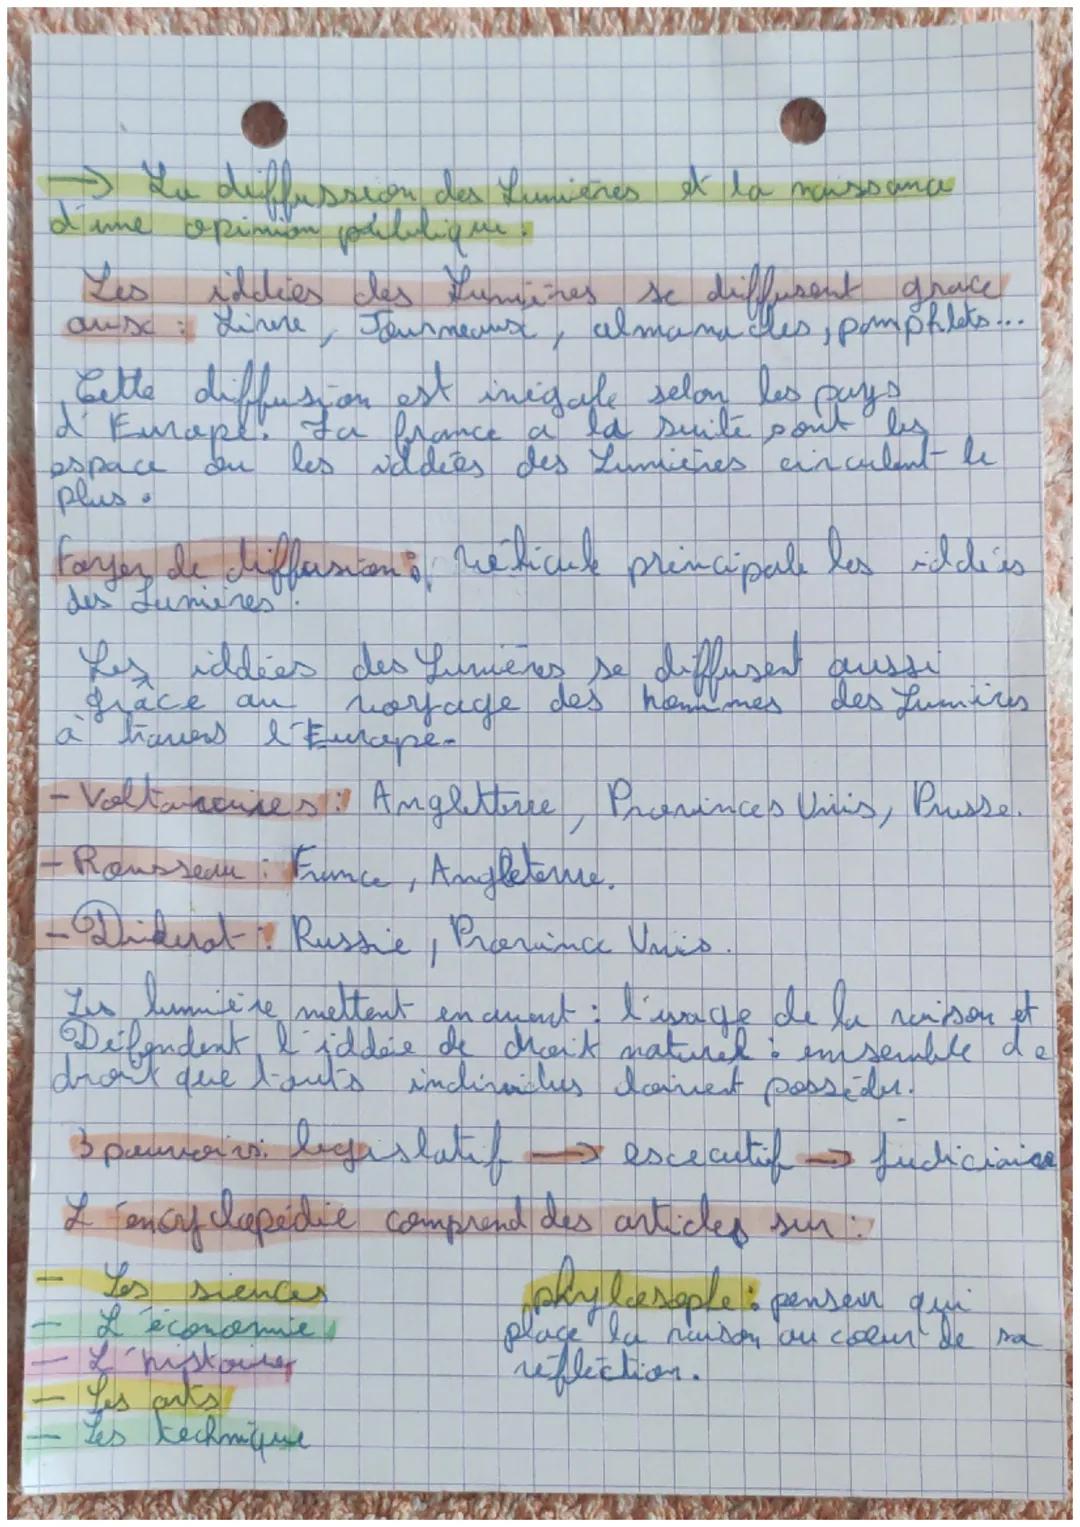 → La diffussion des Lumières et la naissance
d'une opinion publique.
Les iddées des Lumières se diffusent grace
aux : Livre, Journeaux, almanaches, pamphlets...
Cette diffusion est inégale selon les pays
d'Europe. La france a la suite sont les
espace ou les iddées des Lumières circulent le
plus.
Foyer de diffusion : véhicule principale les iddées
des Lumières.
Les iddées des Lumières se diffusent aussi
grâce au voyage des hommes des Lumières
à travers l'Europe.
- Voltaires : Angletterre, Provinces Unis, Prusse.
- Rousseau : France, Angleterre.
- Diderot : Russie, Province Unis.
Les lumière mettent en avant : l'usage de la raison et
Défendent l'iddée de droit naturel : ensemble de
droit que touts individus doivent posséder.
3 pouvoirs : legislatif → excecutif → judiciaire
L'encyclopédie comprend des articles sur :
- Les siences
- L'économie
- L'histoire
- Les arts
- Les technique
phylosophe : penseur qui
place la raison au coeur de sa
réflection.